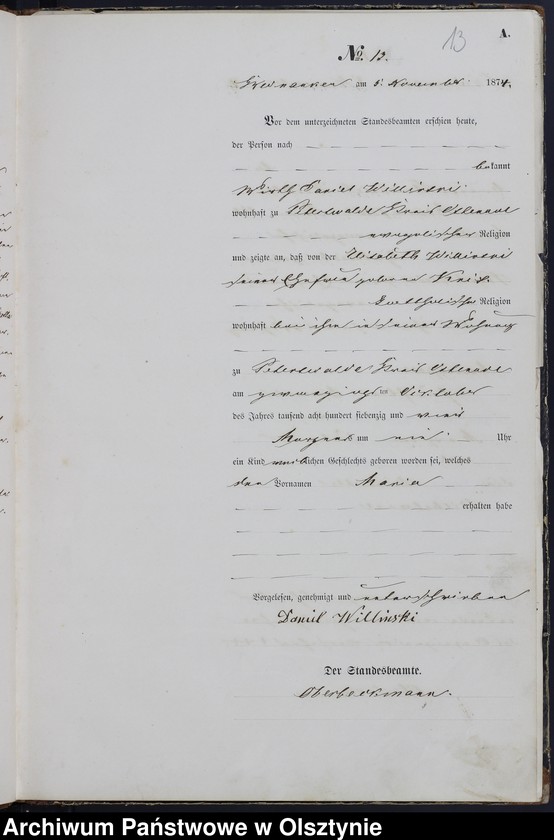 A.
13
No. 13.
am 5. November 1874.
Vor dem unterzeichneten Standesbeamten erschien heute,
der Person nach
bekannt
Daniel Willinski
wohnhaft zu Kreis Osterode
evangelischer Religion
und zeigte an, daß von der Elisabeth Willinski
seiner Ehefrau geborne
katholischer Religion
wohnhaft bei ihm in seiner Wohnung
zu Kreis Osterode
am ten Oktober
des Jahres tausend acht hundert siebenzig und vier
Morgens um Uhr
ein Kind weiblichen Geschlechts geboren worden sei, welches
den Vornamen Maria
erhalten habe
Vorgelesen, genehmigt und unterschrieben
Daniel Willinski
Der Standesbeamte.
Oberbeckmann.
Archiwum Państwowe w Olsztynie